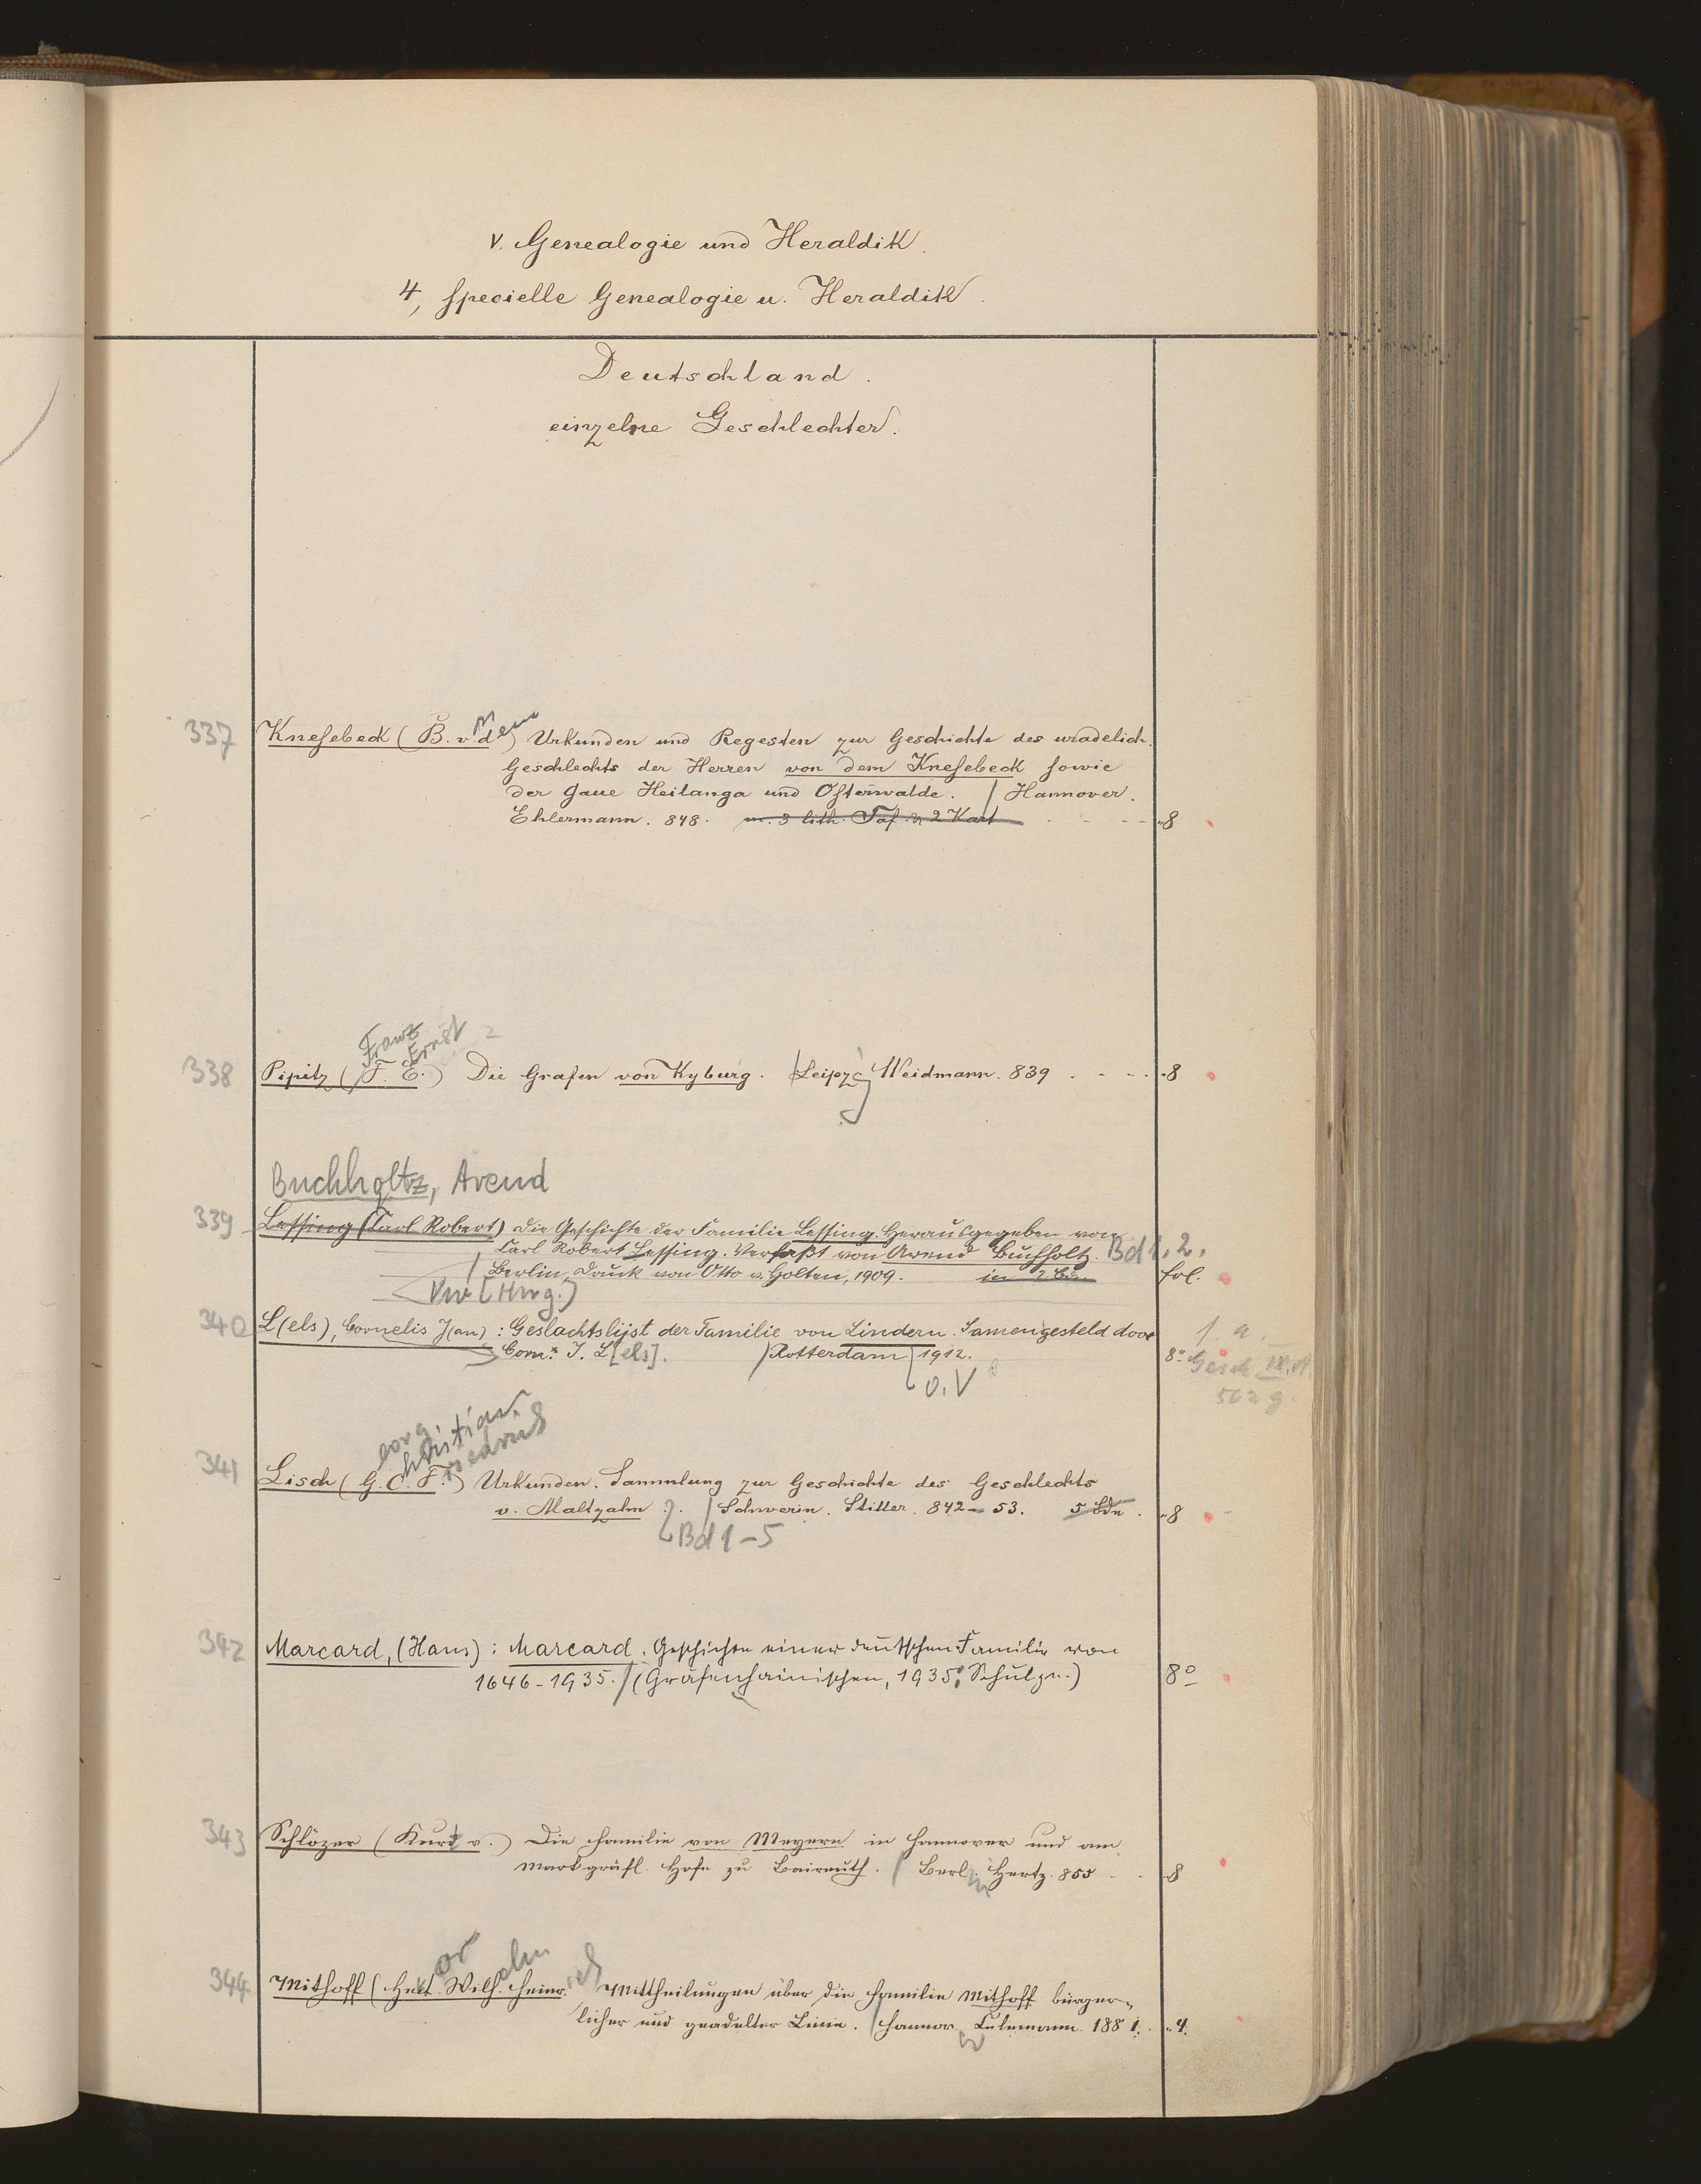 V. Genealogie und Heraldik.
4, specielle Genealogie u. Heraldik.
Deutschland.
einzelne Geschlechter.
337 Knesebeck (B. v. dem) Urkunden und Regesten zur Geschichte des uradelich.
Geschlechts der Herren von dem Knesebeck sowie
der Gaue Heilanga und Osterwalde. / Hannover.
Ehlermann. 848. m. 3 lith. Taf. u. 2 Kart - - - 8
Franz Ernst
338 Pipitz (F. E.) Die Grafen von Kyburg. / Leipzg Weidmann. 839 . - - . 8
Buchholtz, Arend
339 Lessing (Carl Robert) Die Geschichte der Familie Lessing. Herausgegeben von
Carl Robert Lessing. Verfaßt von Arend Buchholtz. Bd 1. 2.
/ Berlin, Druck von Otto v. Holten, 1909. in 2 Bdn fol.
Vw (Hrsg.)
340 L(els), Cornelis J(an): Geslachtslijst der Familie von Lindern. Samengesteld door
Corns. J. L[els]. / Rotterdam 1912. 8°
o. V
Gesch IX. A.
562 g
eorg hristian riedrich
341 Lisch (G. C. F.) Urkunden. Sammlung zur Geschichte des Geschlechts
v. Maltzahn. / Schwerin. Stiller. 842-53. 5 Bde. 8
Bd 1-5
342 Marcard, (Hans): Marcard. Geschichte einer deutschen Familie von
1646-1935. / (Gräfenhainischen, 1935: Schulze.) 8°
343 Schlözer (Kurd v.) Die Familie von Meyern in Hannover und am
markgräfl. Hofe zu Baireuth. / Berlin Hertz. 855 - . 8
or elm ich
344 Mithoff (Hect. Wilh. Heinr. Mittheilungen über die Familie Mithoff bürger-
licher und geadelter Linie. / Hannov. Culemann. 1881. 4.